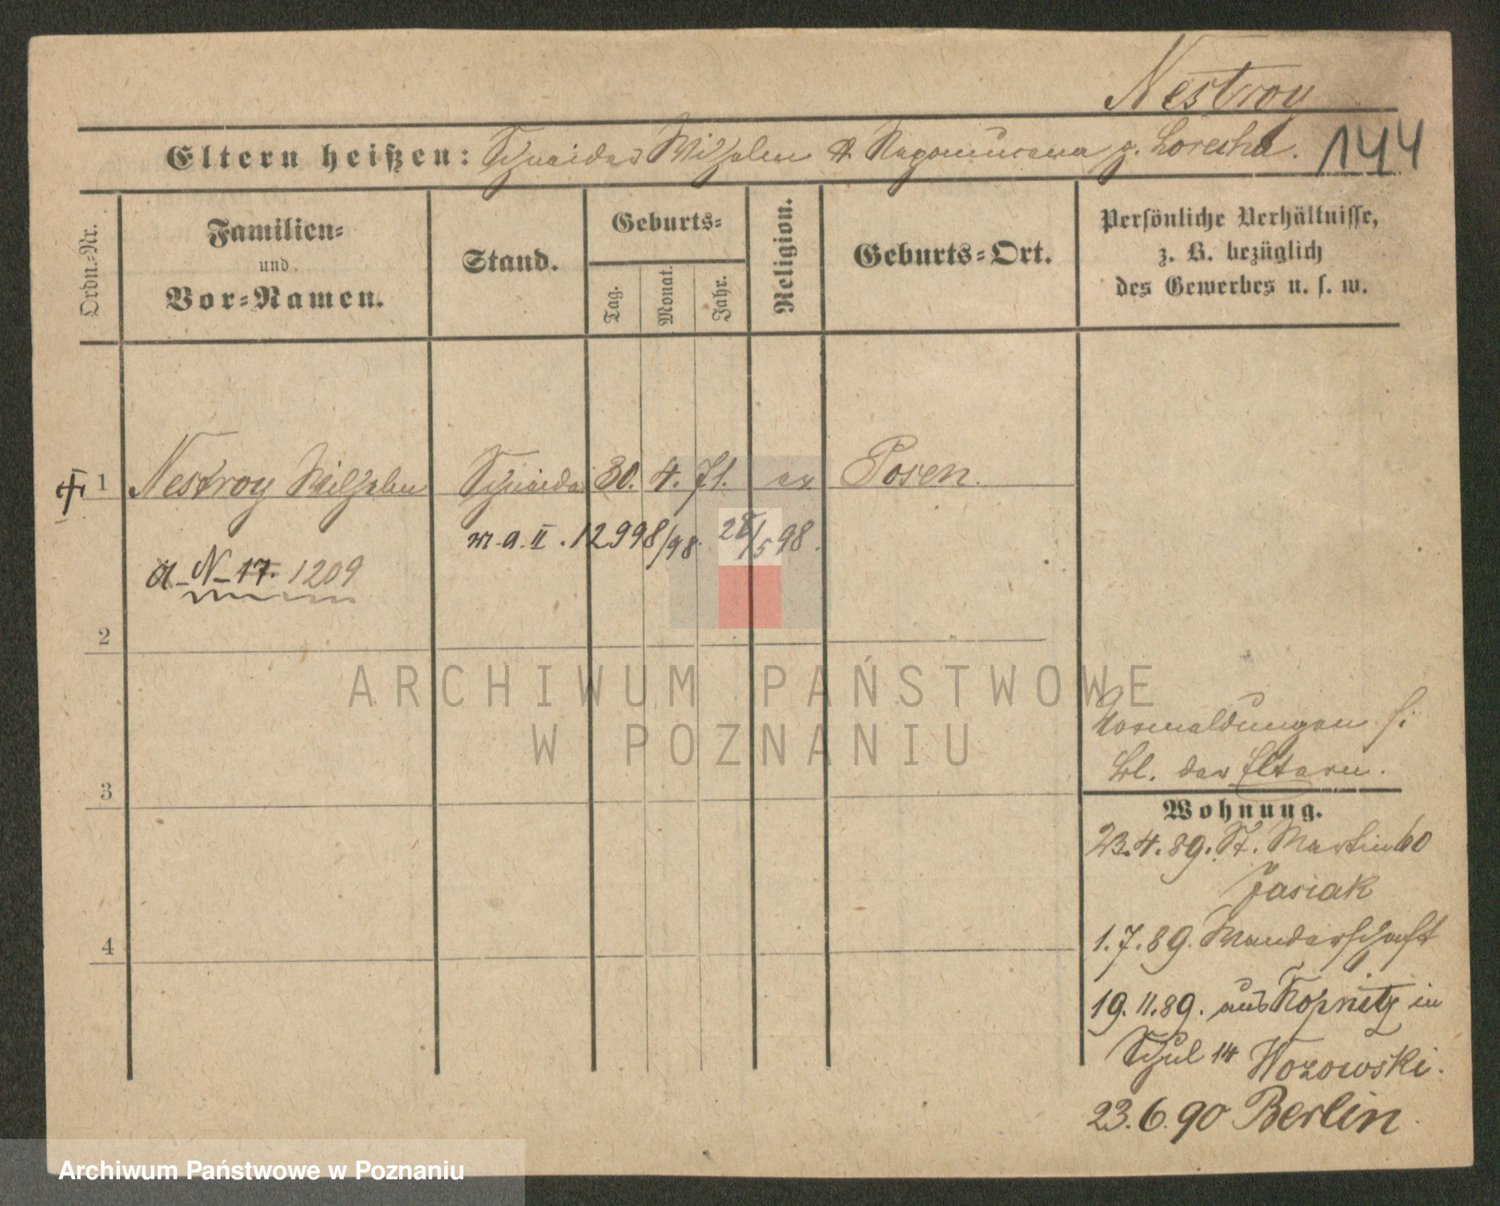 Nestroy
144
Eltern heißen: Schneider Wilhelm & Nepomucena g. Loreska.
Ordn.-Nr.
Familien-
und
Vor-Namen.
Stand.
Geburts-
Tag.
Monat.
Jahr.
Religion.
Geburts-Ort.
Persönliche Verhältnisse,
z. B. bezüglich
des Gewerbes u. s. w.
1 Nestroy Wilhelm Schneider 30. 4. 71. ev Posen.
m. a. II. 12998/98. 98.
a N 17. 1209
2
3
4
Vormeldungen s.
Bl. der Eltern.
Wohnung.
23.4.89. St. Martin 60
Jasiak
1.7.89. Wanderschaft
19.11.89. aus Kopnitz in
Schul 14 Wozowski.
23.6.90 Berlin.
ARCHIWUM PAŃSTWOWE
W POZNANIU
Archiwum Państwowe w Poznaniu